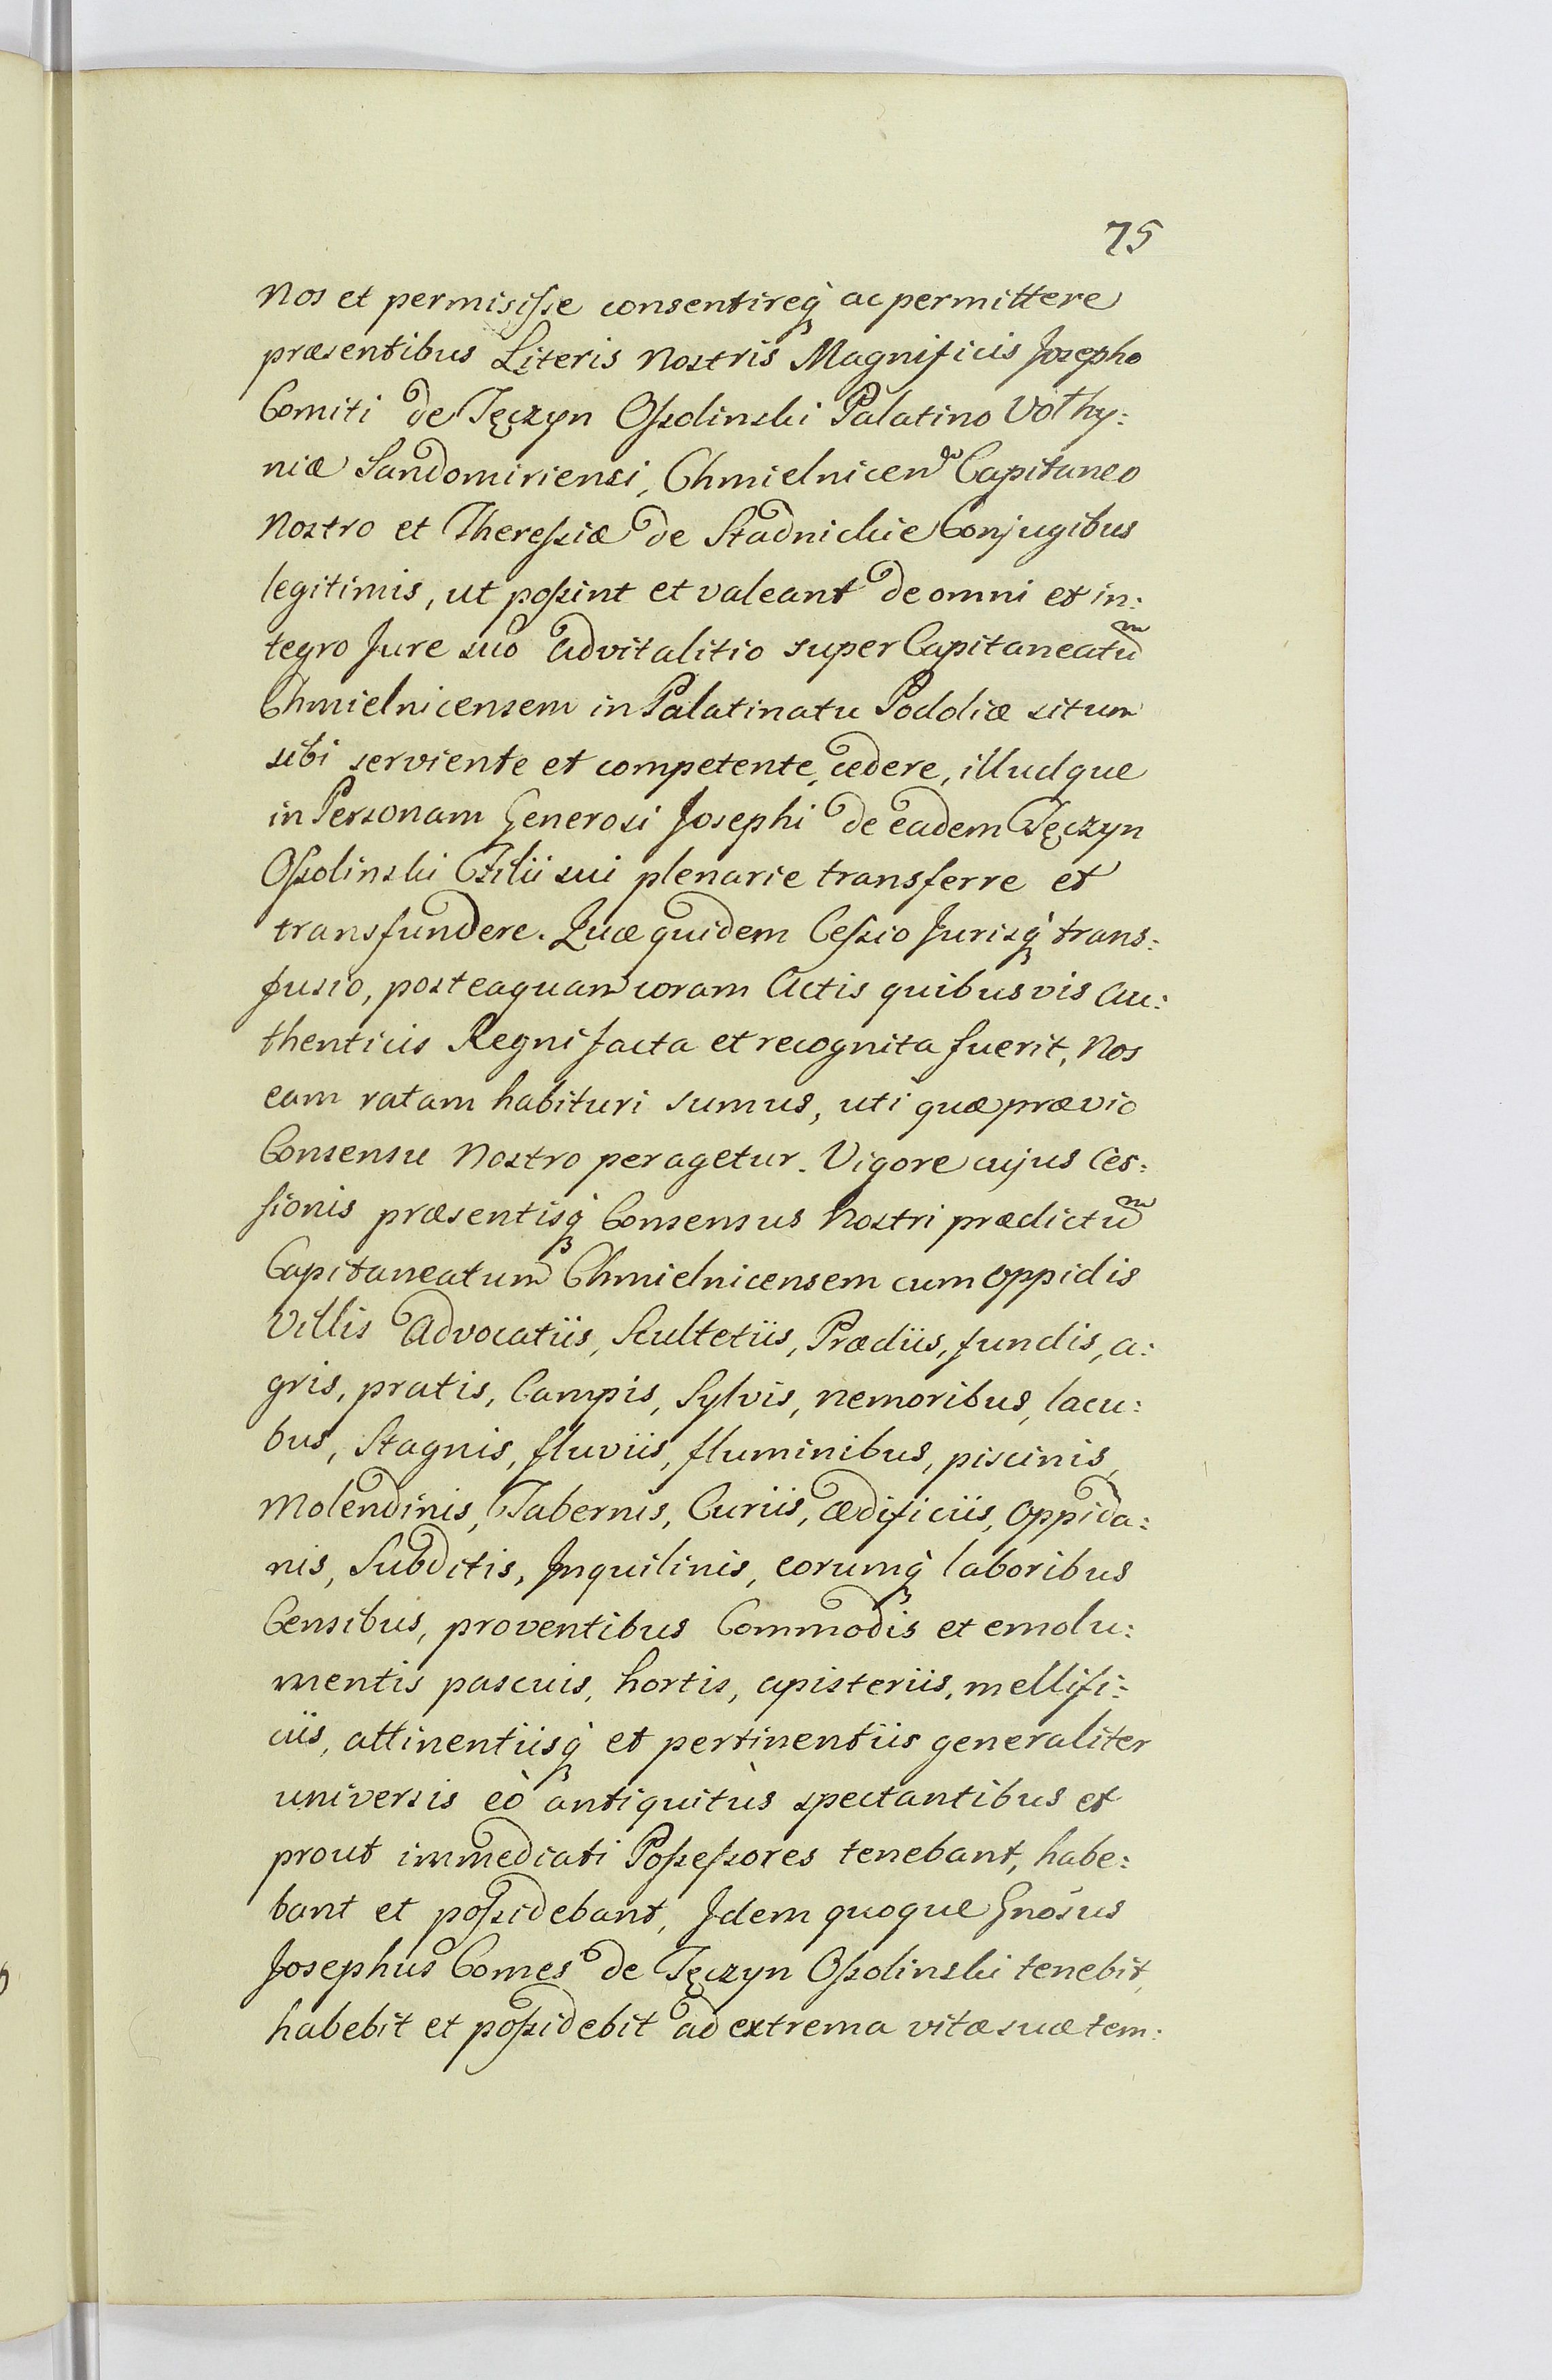 75
Nos et permisiſse consentireq́ ac permittere
præsentibus Literis Nostris Magnificis Josepho
Comiti de Tęczyn Oſsolinski Palatino Volhy:
niæ Sandomiriensi, Chmielnicen Capitaneo
Nostro et Thereſsiæ de Stadnickie Conjugibus
legitimis, ut poſsint et valeant de omni et in:
tegro Jure suo advitalitio super Capitaneatũ
Chmielnicensem in Palatinatu Podoliæ situm
sibi serviente et competente, cedere, illudque
in Personam Generosi Josephi de eadem Tęczyn
Oſsolinski Filii sui plenarie transferre et
transfundere. Quæ quidem Ceſsio Jurisq́ trans:
fusio, posteaquam coram Actis quibusvis Au:
thenticis Regni facta et recognita fuerit, Nos
eam ratam habituri sumus, uti quæ prævio
Consensu Nostro peragetur. Vigore cujus Ces:
sionis præsentisq́ Consensus Nostri prædictũ
Capitaneatum Chmielnicensem cum oppidis
Villis Advocatiis, Scultetiis, Prædiis, fundis, a:
gris, pratis, Campis, Sylvis, nemoribus, lacu:
bus, Stagnis, fluviis, fluminibus, piscinis,
Molendinis, Tabernis, Curiis, ædificiis, Oppida:
nis, Subditis, Inquilinis, eorumq́ laboribus
Censibus, proventibus Commodis et emolu:
mentis pascuis, hortis, apisteriis, mellifi:
ciis, attinentiisq́ et pertinentiis generaliter
universis eò antiquitùs spectantibus et
prout immediati Poſseſsores tenebant, habe:
bant et poſsidebant, Idem quoque Gnosus
Josephus Comes de Tęczyn Oſsolinski tenebit,
habebit et poſsidebit ad extrema vitæ suæ tem: